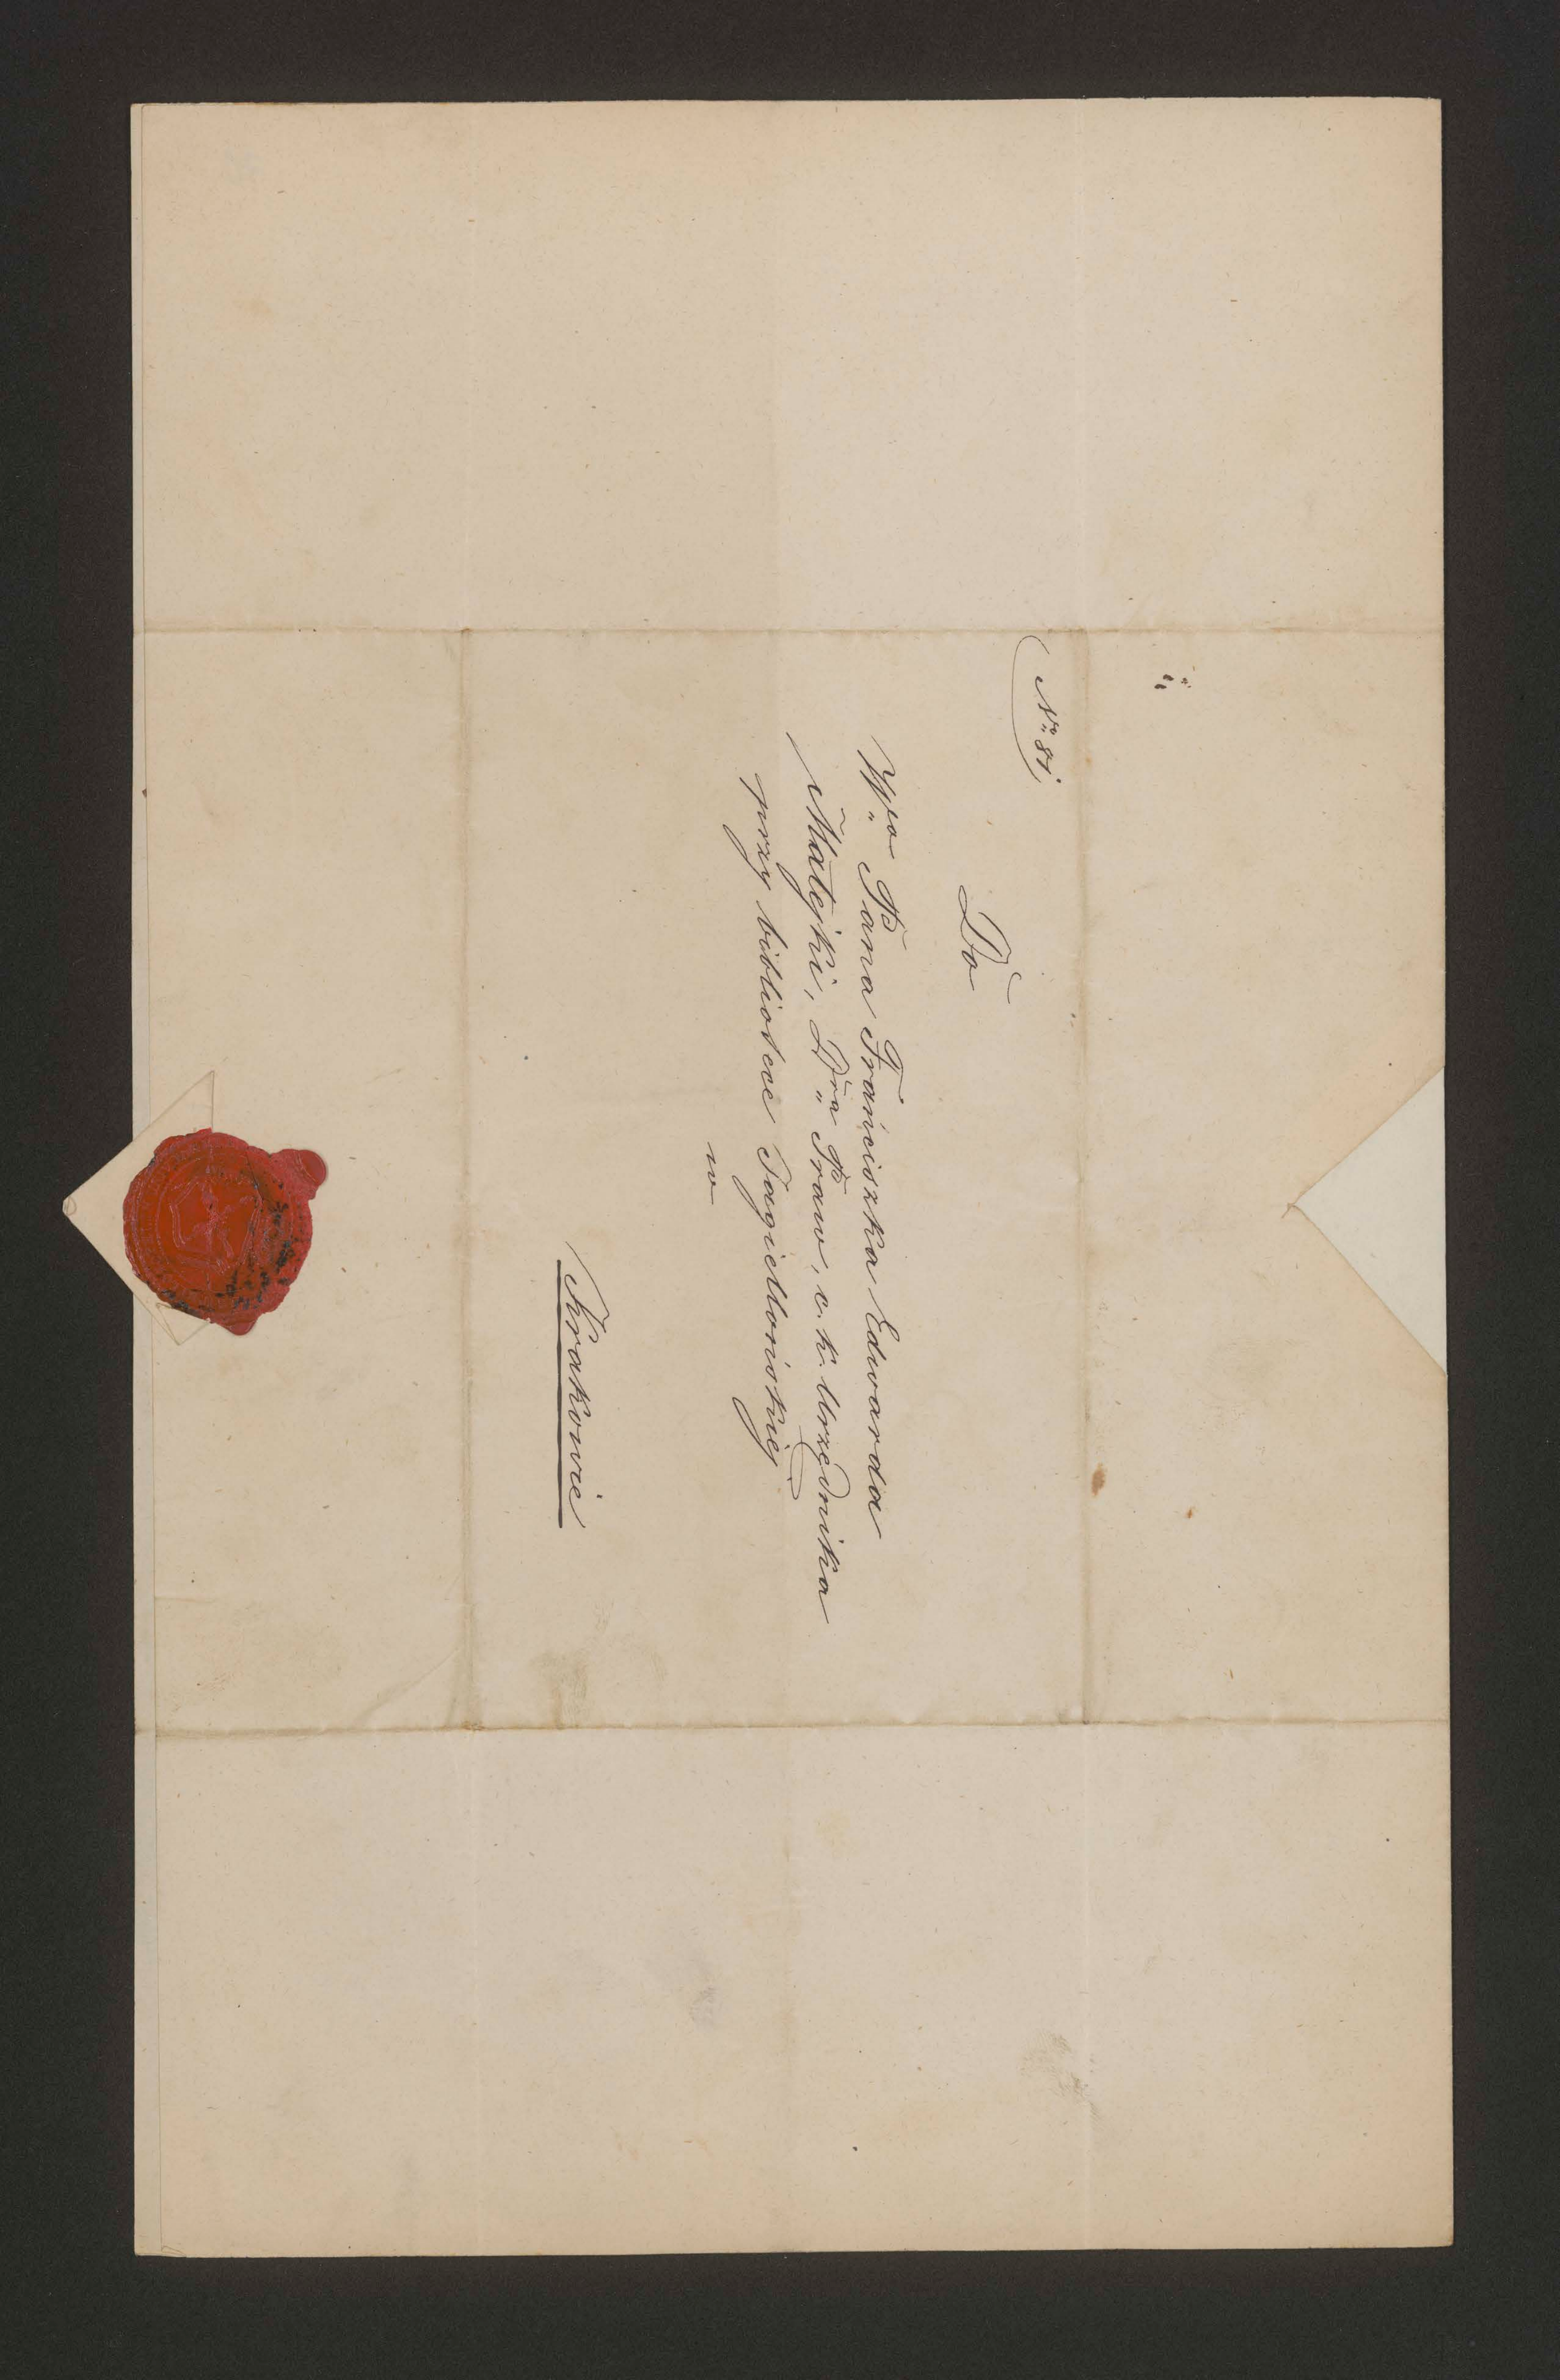 No 81.
Do
Wgo Pana Franciszka Edwarda
Matejki, Dra Praw, c. k. Urzędnika
przy bibliotece Jagiellońskiej
w
Krakowie